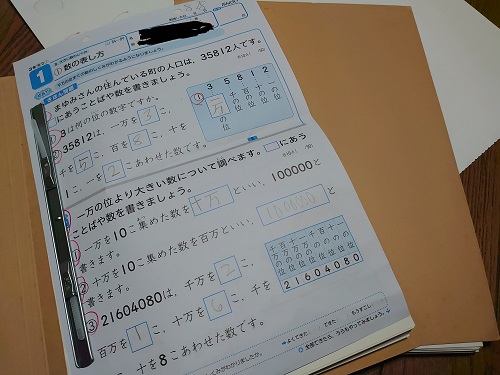 1 ① 数の表し方
まゆみさんの住んでいる町の人口は、35812人です。
にあうことばや数を書きましょう。
① 3は何の位の数字ですか。
② 35812は、一万を3こ、
千を5こ、百を8こ、十を
1こ、一を2こあわせた数です。
3 5 8 1 2
① 一万の位 千の位 百の位 十の位 一の位
一万の位より大きい数について調べます。□にあう
ことばや数を書きましょう。
① 一万を10こ集めた数を十万といい、100000と
書きます。
② 十万を10こ集めた数を百万といい、1000000と
書きます。
③ 21604080は、千万を2こ、
百万を1こ、十万を6こ、千を
こ、十を8こあわせた数です。
千万の位 百万の位 十万の位 一万の位 千の位 百の位 十の位 一の位
2 1 6 0 4 0 8 0
よくできた できた もうすこし
全部できたら、うらもやってみましょう。